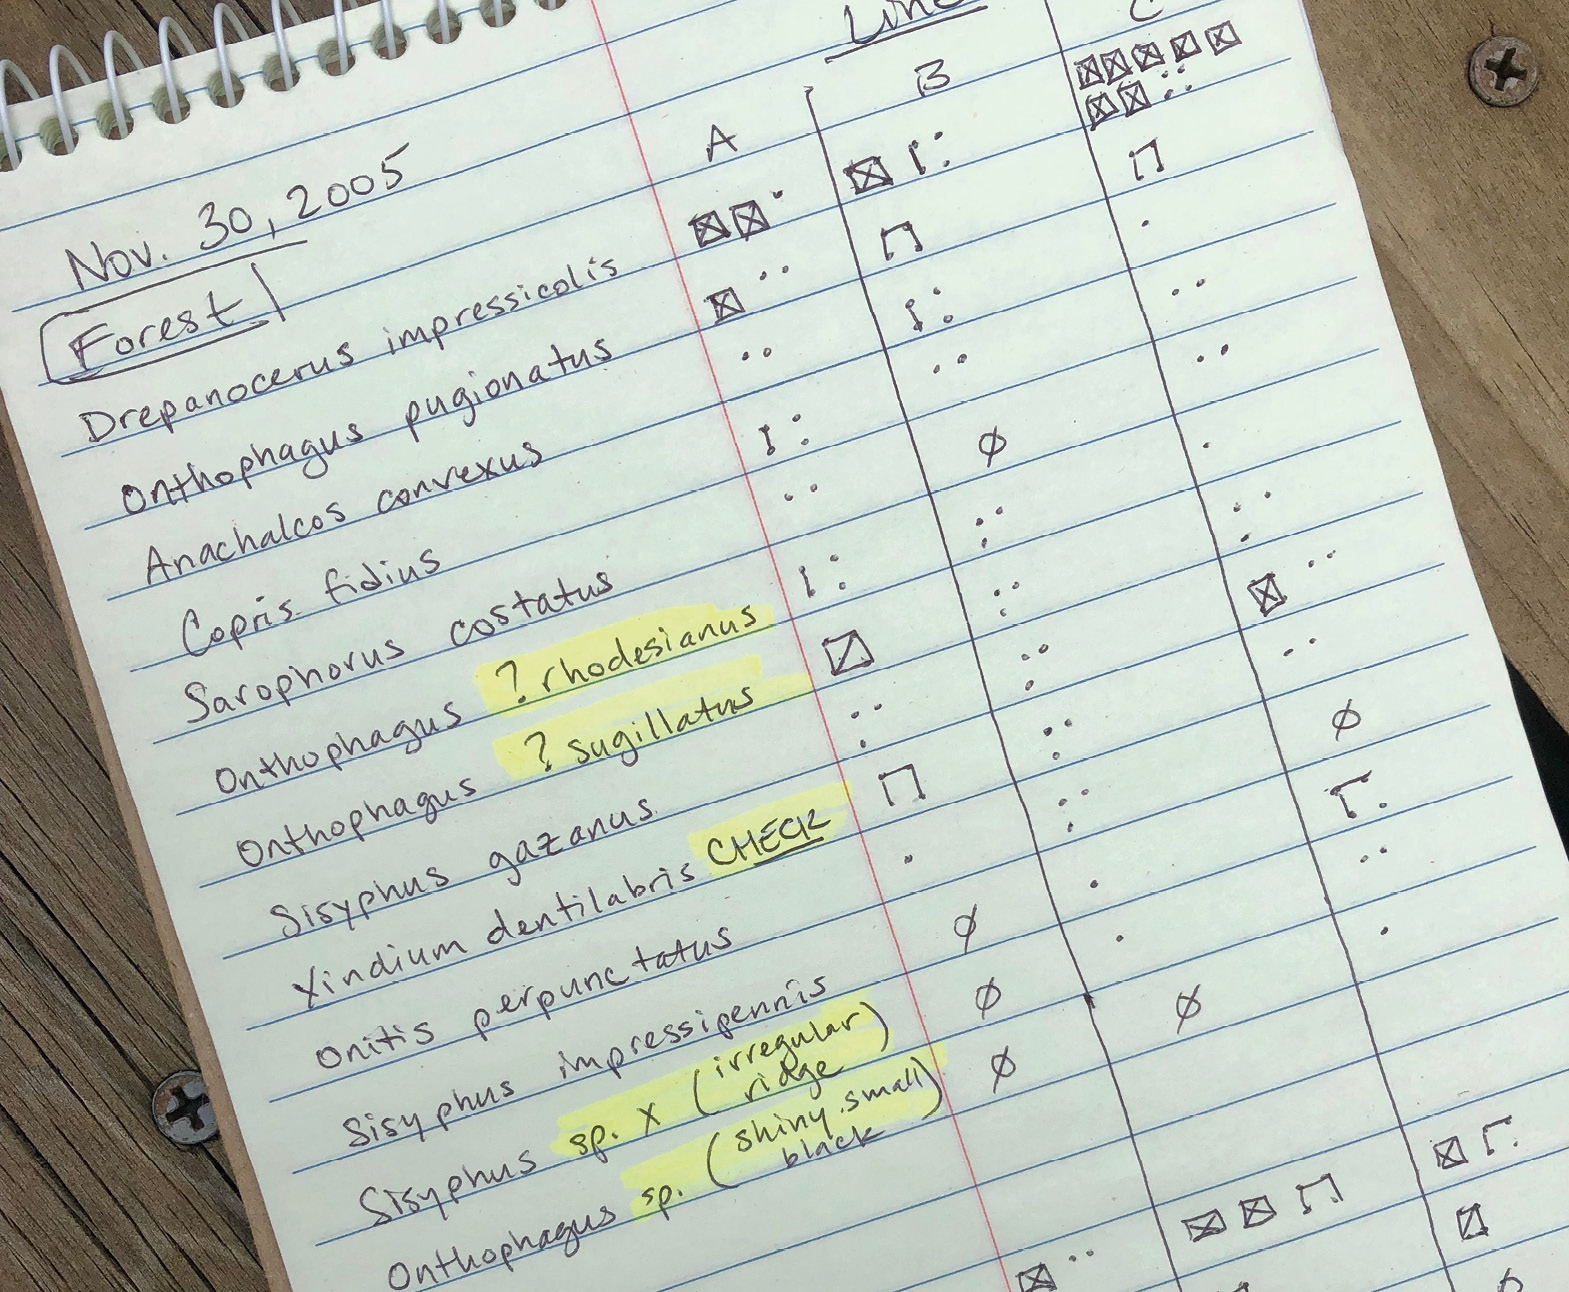 Line
A B C
Nov. 30, 2005
Forest
Drepanocerus impressicolis
Onthophagus pugionatus
Anachalcos convexus
Copris fidius
Sarophorus costatus ∅
Onthophagus ? rhodesianus
Onthophagus ? sugillatus
Sisyphus gazanus
Xindium dentilabris CHECK ∅
Onitis perpunctatus
Sisyphus impressipennis ∅
Sisyphus sp. X (irregular ridge) ∅ ∅
Onthophagus sp. (shiny.small black) ∅